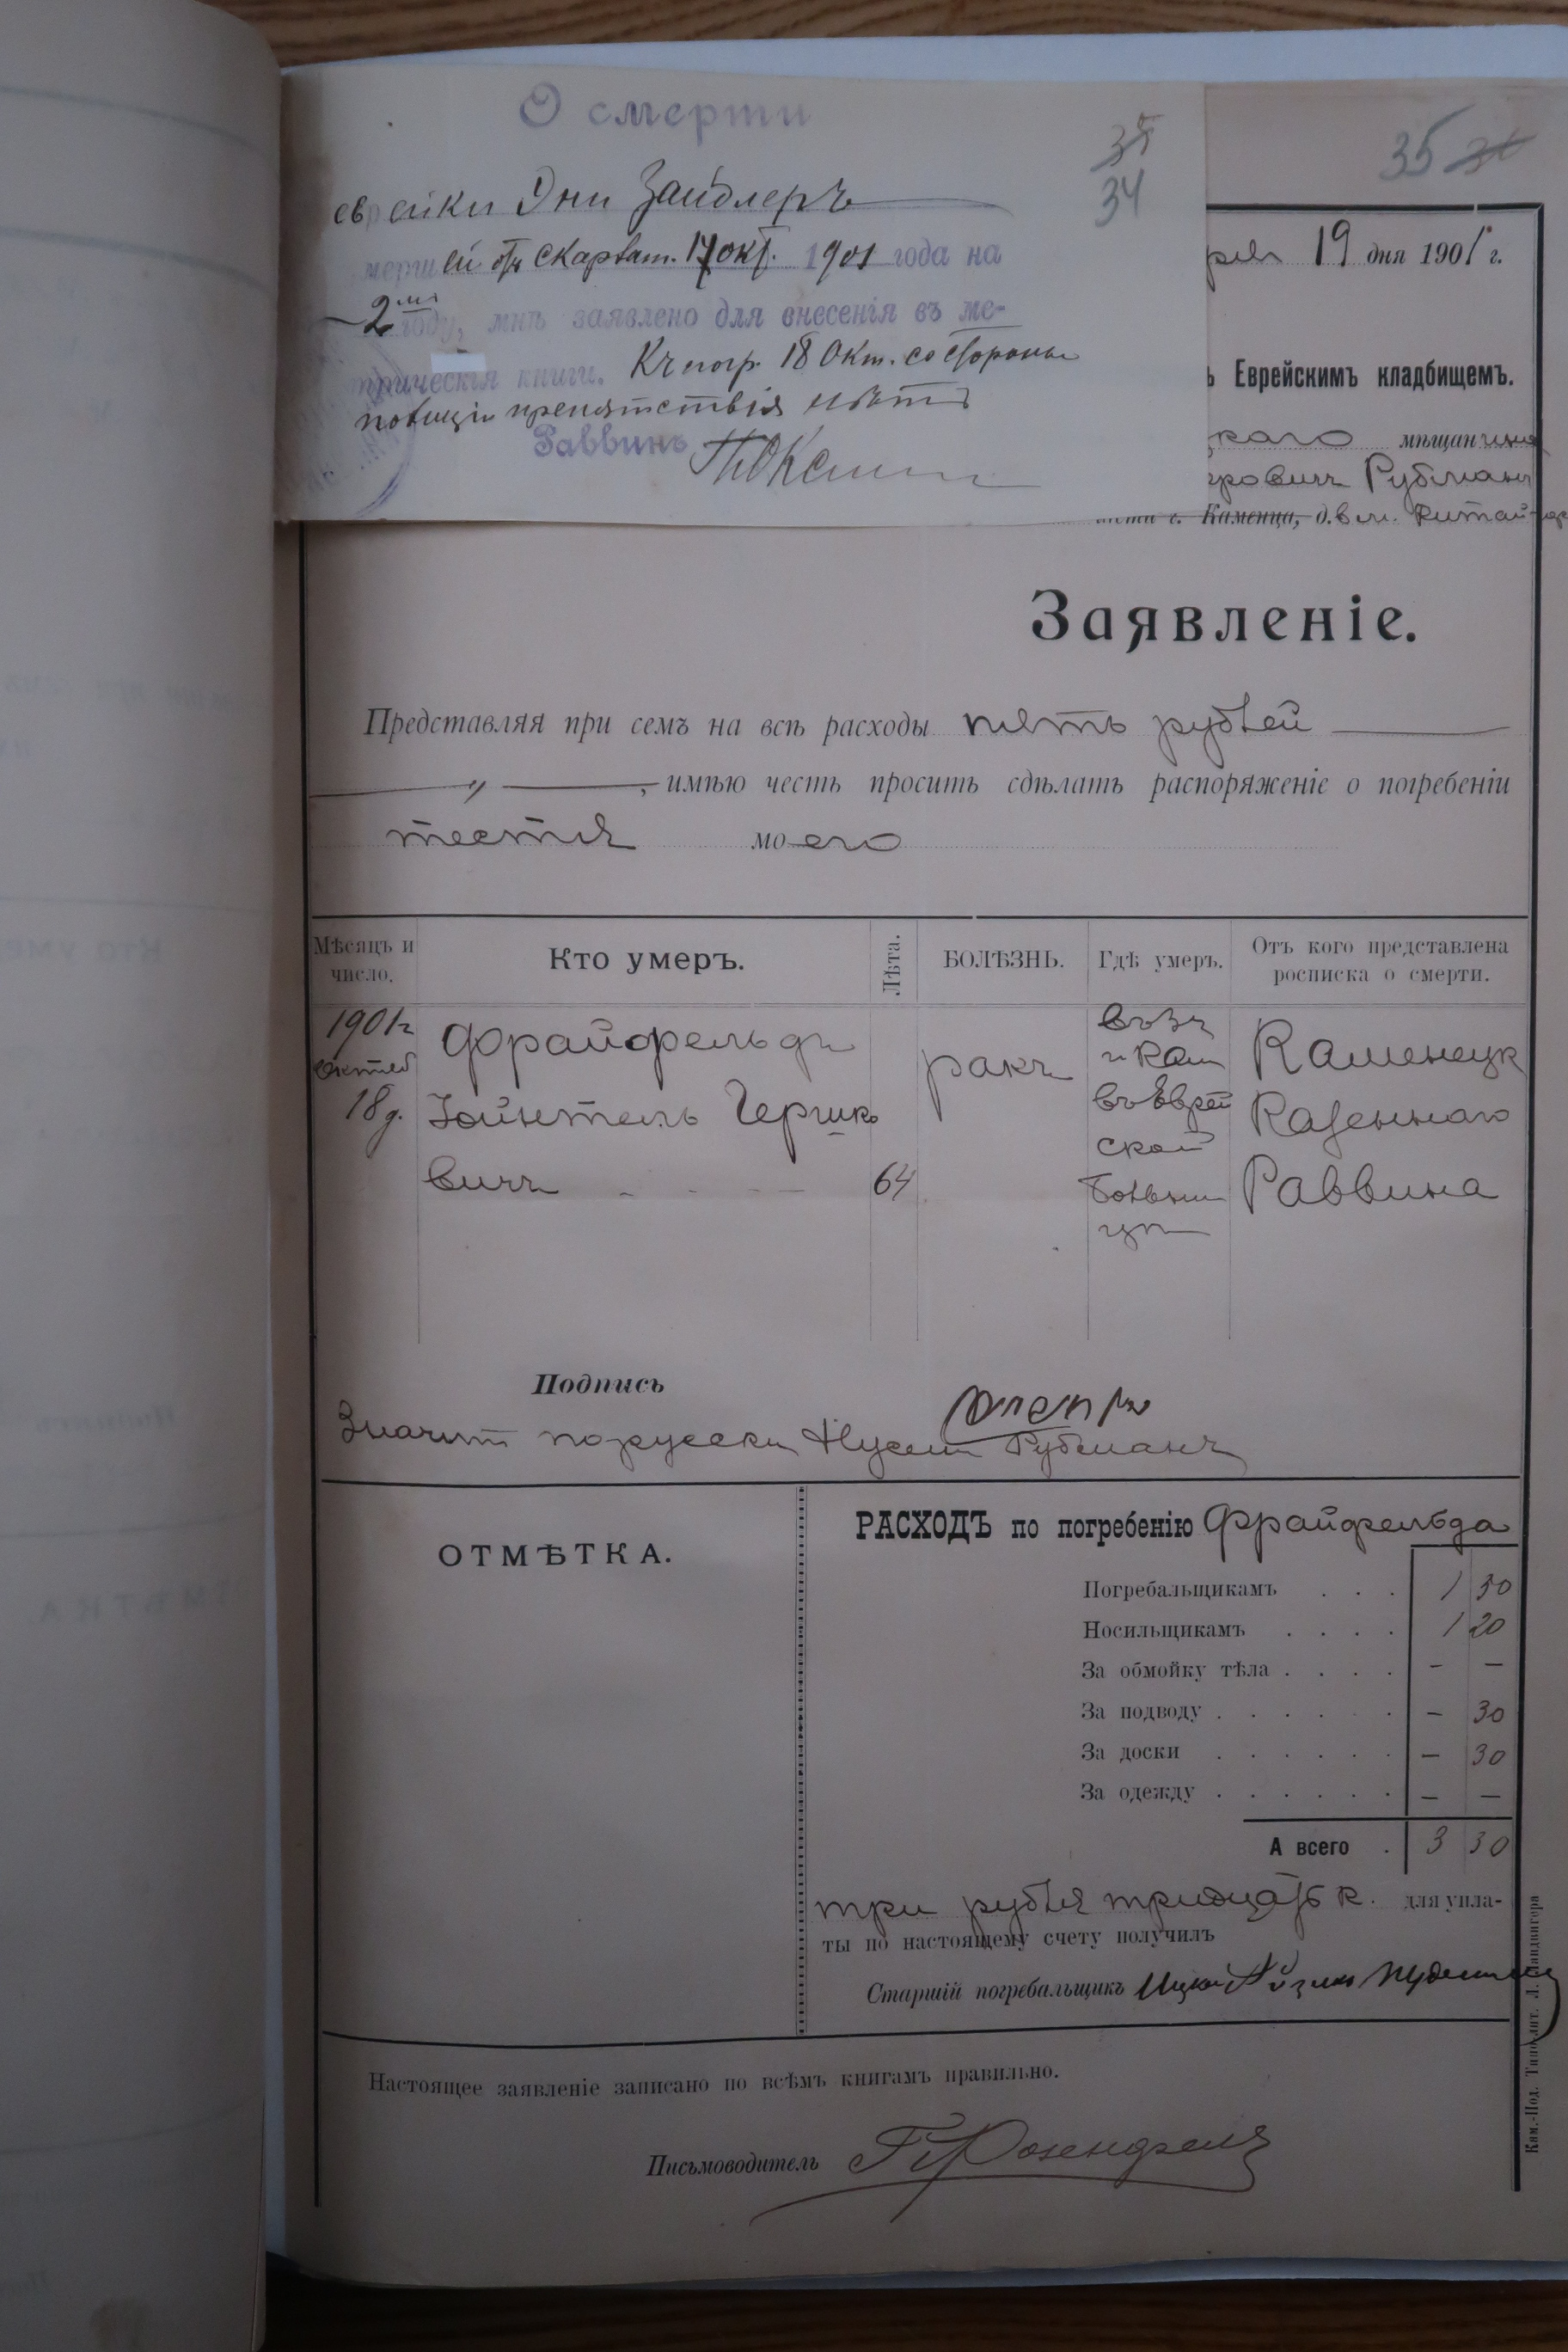 О смерти
еврейки Эни Зайдлеръ
мершей отъ скарлат. 17 окт. 1901 года на
2мъ году, мнѣ заявлено для внесенія въ ме-
трическія книги. Къ погр. 18 Окт. со стороны
полиціи препятствія нѣтъ
Раввинъ
35
34
35 34
19 дня 1901 г.
ъ Еврейскимъ кладбищемъ.
каго мѣщанина
ровичъ Рубманъ
г. Каменца, д. в м. Китай
Заявленіе.
Представляя при семъ на всѣ расходы пять рублей
„ , имѣю честь просить сдѣлать распоряженіе о погребеніи
тестя моего
Мѣсяцъ и число.
Кто умеръ.
Лѣта.
БОЛѢЗНЬ.
Гдѣ умеръ.
Отъ кого представлена росписка о смерти.
1901 г.
октяб
18 д.
Фрайфельдъ
Зойнтель Гершко
вичъ
64
ракъ
въ
г. Кам
въ Еврей
ской
больни
цѣ
Каменецк
Казеннаго
Раввина
Подпись
Значит порусски Нусин Рубманъ
ОТМѢТКА.
РАСХОДЪ по погребенію Фрайфельда
Погребальщикамъ . . . 1 50
Носильщикамъ . . . . 1 20
За обмойку тѣла . . . . – –
За подводу . . . . . . – 30
За доски . . . . . . – 30
За одежду . . . . . . – –
А всего . 3 30
три рубля тридцать к. для упла-
ты по настоящему счету получилъ
Старшій погребальщикъ
Настоящее заявленіе записано по всѣмъ книгамъ правильно.
Письмоводитель Розенфельд
Кам.-Под. Типо-лит. Л. Ландвигера